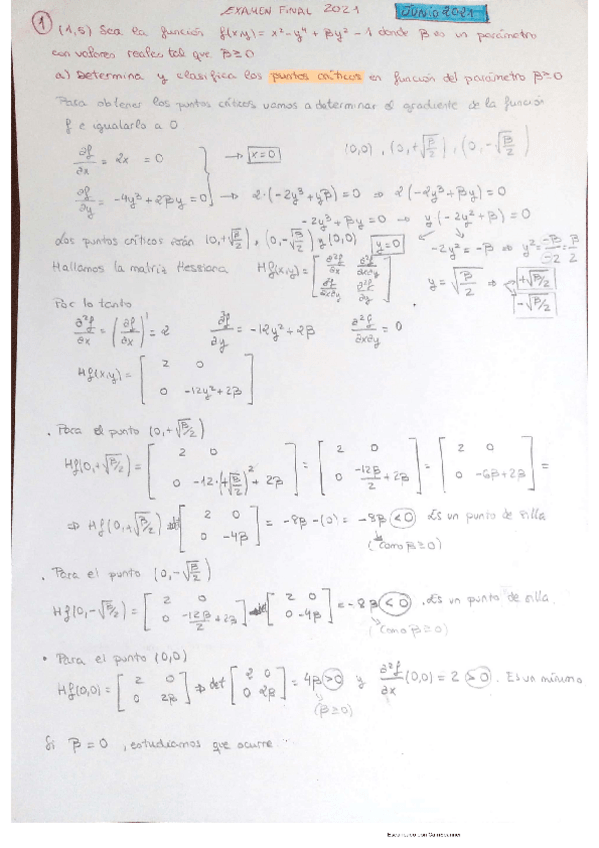 EXAMEN FINAL 2021 JUNIO 2021
① (1,5) Sea la función f(x,y) = x² - y⁴ + βy² - 1 donde β es un parámetro
con valores reales tal que β≥0
a) Determina y clasifica los puntos críticos en función del parámetro β≥0
Para obtener los puntos críticos vamos a determinar el gradiente de la función
f e igualarlo a 0
∂f/∂x = 2x = 0 → x=0 (0,0), (0,+√β/2), (0,-√β/2)
∂f/∂y = -4y³ + 2βy = 0 → 2·(-2y³ + yβ) = 0 ⇒ 2(-2y³ + βy) = 0
-2y³ + βy = 0 → y(-2y² + β) = 0
Los puntos críticos serán (0,+√β/2), (0,-√β/2) y (0,0) y=0 -2y² = -β ⇒ y² = -β/-2 = β/2
Hallamos la matriz Hessiana Hf(x,y) = [∂²f/∂x ∂²f/∂x∂y ∂f/∂x∂y ∂²f/∂y] y = √β/2 ⇒ +√β/2 -√β/2
Por lo tanto
∂²f/∂x = (∂f/∂x)' = 2 ∂²f/∂y = -12y² + 2β ∂²f/∂x∂y = 0
Hf(x,y) = [2 0 0 -12y²+2β]
. Para el punto (0,+√β/2)
Hf(0,+√β/2) = [2 0 0 -12·(+√β/2)² + 2β] = [2 0 0 -12β/2 + 2β] = [2 0 0 -6β+2β] =
⇒ Hf(0,+√β/2) [2 0 0 -4β] = -8β - (0) = -8β <0 Es un punto de silla
(como β≥0)
. Para el punto (0,-√β/2)
Hf(0,-√β/2) = [2 0 0 -12β/2 + 2β] [2 0 0 -4β] = -8β <0 . Es un punto de silla.
(como β≥0)
• Para el punto (0,0)
Hf(0,0) = [2 0 0 2β] ⇒ det [2 0 0 2β] = 4β >0 y ∂²f/∂x (0,0) = 2 >0 . Es un mínimo
(β≥0)
Si β = 0 , estudiamos que ocurre.
Escaneado con CamScanner